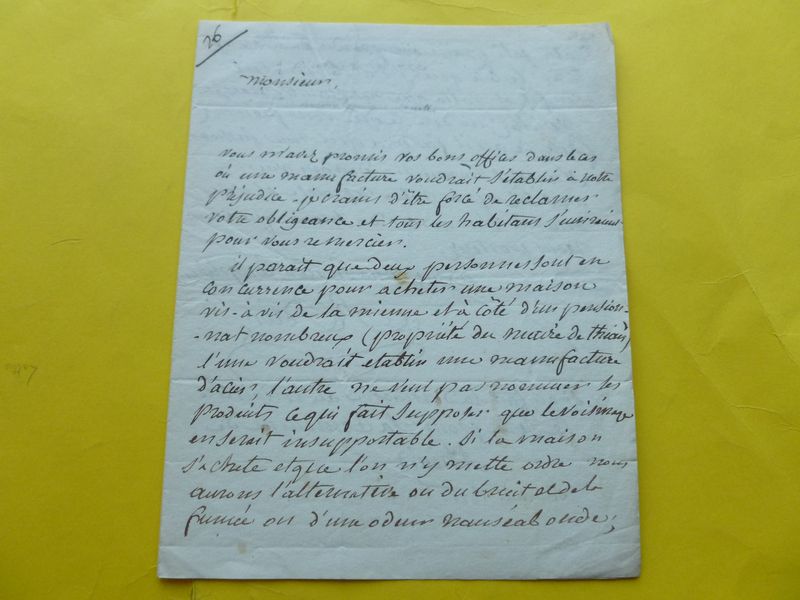 26
Monsieur,
vous m'avez promis vos bons offices dans le cas
où une manufacture voudrait s'établir à notre
préjudice. je crains d'être forcé de réclamer
votre obligeance et tous les habitans s'uniraient
pour vous remercier.
il parait que deux personnes sont en
concurrence pour acheter une maison
vis-à vis de la mienne et à côté d'un pension-
-nat nombreux (propriété du maire de thiais)
l'une voudrait etablir une manufacture
d'acier, l'autre ne veut pas nommer les
produits ce qui fait supposer que le voisinage
en serait insupportable. Si la maison
s'achete et que l'on n'y mette ordre nous
aurons l'alternative ou du bruit et de la
fumée ou d'une odeur nauséabonde;